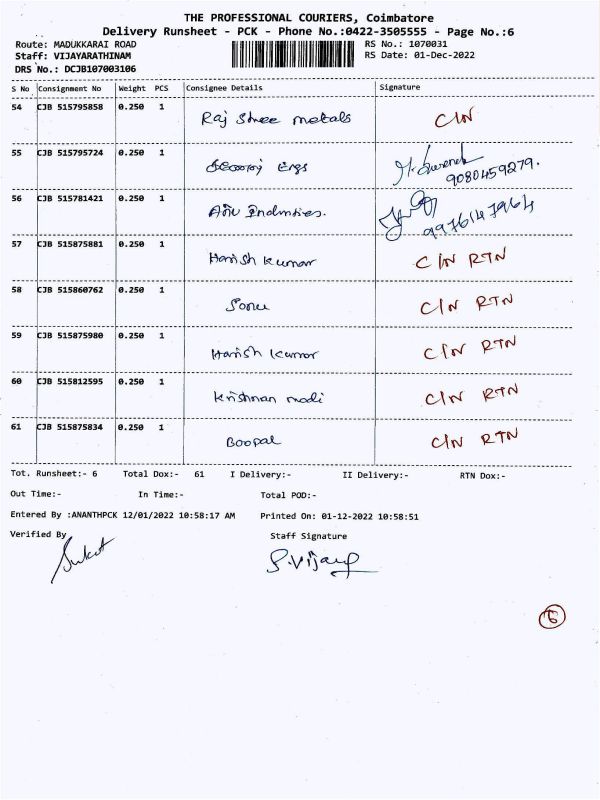 THE PROFESSIONAL COURIERS, Coimbatore
Delivery Runsheet - PCK - Phone No.:0422-3505555 - Page No.:6
Route: MADUKKARAI ROAD RS No.: 1070031
Staff: VIJAYARATHINAM RS Date: 01-Dec-2022
DRS No.: DCJB107003106
S No Consignment No Weight PCS Consignee Details Signature
54 CJB 515795858 0.250 1 Raj Shree metals C/N
55 CJB 515795724 0.250 1 Engs
9080459279.
56 CJB 515781421 0.250 1 9976147964
57 CJB 515875881 0.250 1 Harish Kumar C/N RTN
58 CJB 515860762 0.250 1 Sonu C/N RTN
59 CJB 515875980 0.250 1 Harish Kumar C/N RTN
60 CJB 515812595 0.250 1 Krishnan modi C/N RTN
61 CJB 515875834 0.250 1 Boopal C/N RTN
Tot. Runsheet:- 6 Total Dox:- 61 I Delivery:- II Delivery:- RTN Dox:-
Out Time:- In Time:- Total POD:-
Entered By :ANANTHPCK 12/01/2022 10:58:17 AM Printed On: 01-12-2022 10:58:51
Verified By Staff Signature
S.Vijay
6